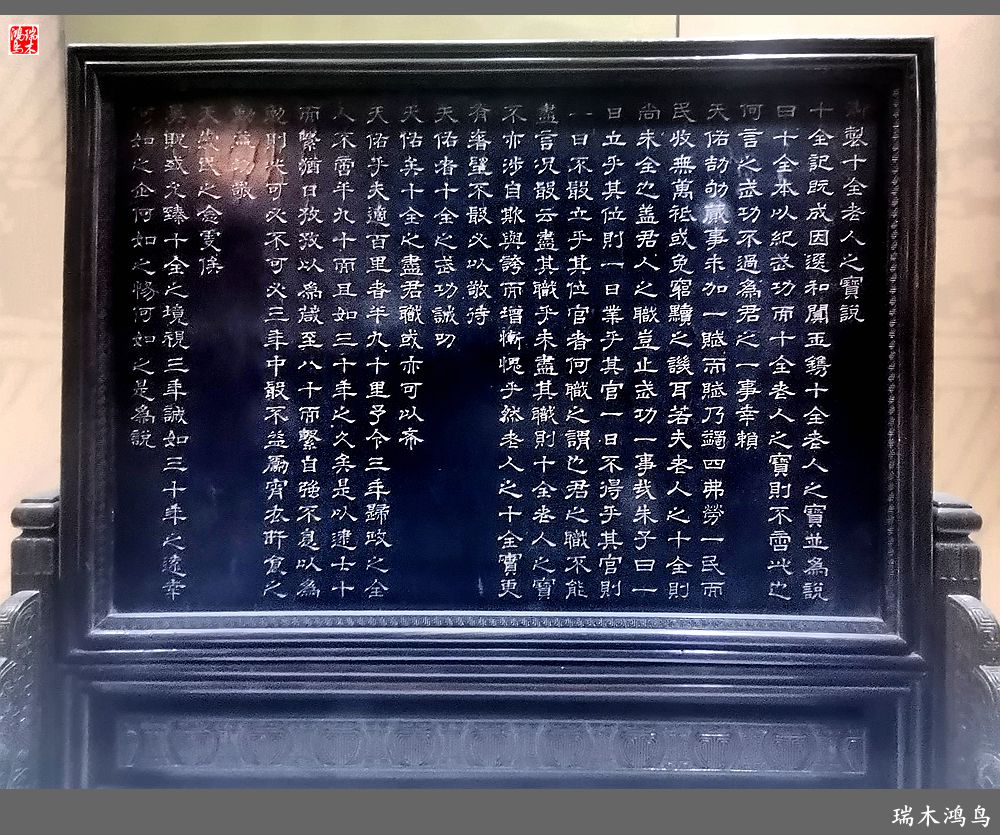 御製十全老人之寶說
十全記既成因選和闐玉鐫十全老人之寶並為說
曰十全本以紀武功而十全老人之寶則不啻此也
何言之武功不過為君之一事幸賴
天佑劼劬蕆事未加一賦而賦乃蠲四弗勞一民而
民收無萬祗或免窮黷之譏耳若夫老人之十全則
尚未全也蓋君人之職豈止武功一事哉朱子曰一
日立乎其位則一日業乎其官一日不得乎其官則
一日不敢立乎其位官者何職之謂也君之職不能
盡言況敢云盡其職乎未盡其職則十全老人之寶
不亦涉自欺與誇而增慚愧乎然老人之十全實更
有奢望不敢必以敬待
天佑者十全之武功誠叨
天佑矣十全之盡君職或亦可以希
天佑乎夫適百里者半九十里予今三年歸政之全
人不啻半九十而且如三十年之久矣是以逮七十
而繫猶日孜孜以為箴至八十而繫自強不息以為
勉則此可必不可必三年中敢不益勵宵衣旰食之
勤益切敬
天愛民之念虔俟
昊貺或允臻十全之境視三年誠如三十年之遠幸
何如之企何如之惕何如之是為說
瑞木鴻鳥
瑞木鸿鸟